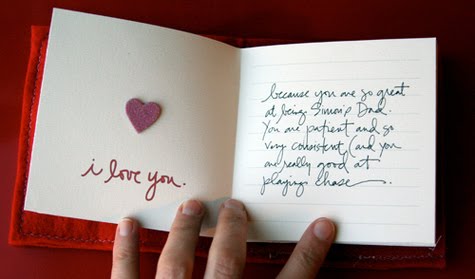 i love you.
because you are so great
at being Simon's Dad.
You are patient and so
very consistent (and you
are really good at
playing chase.